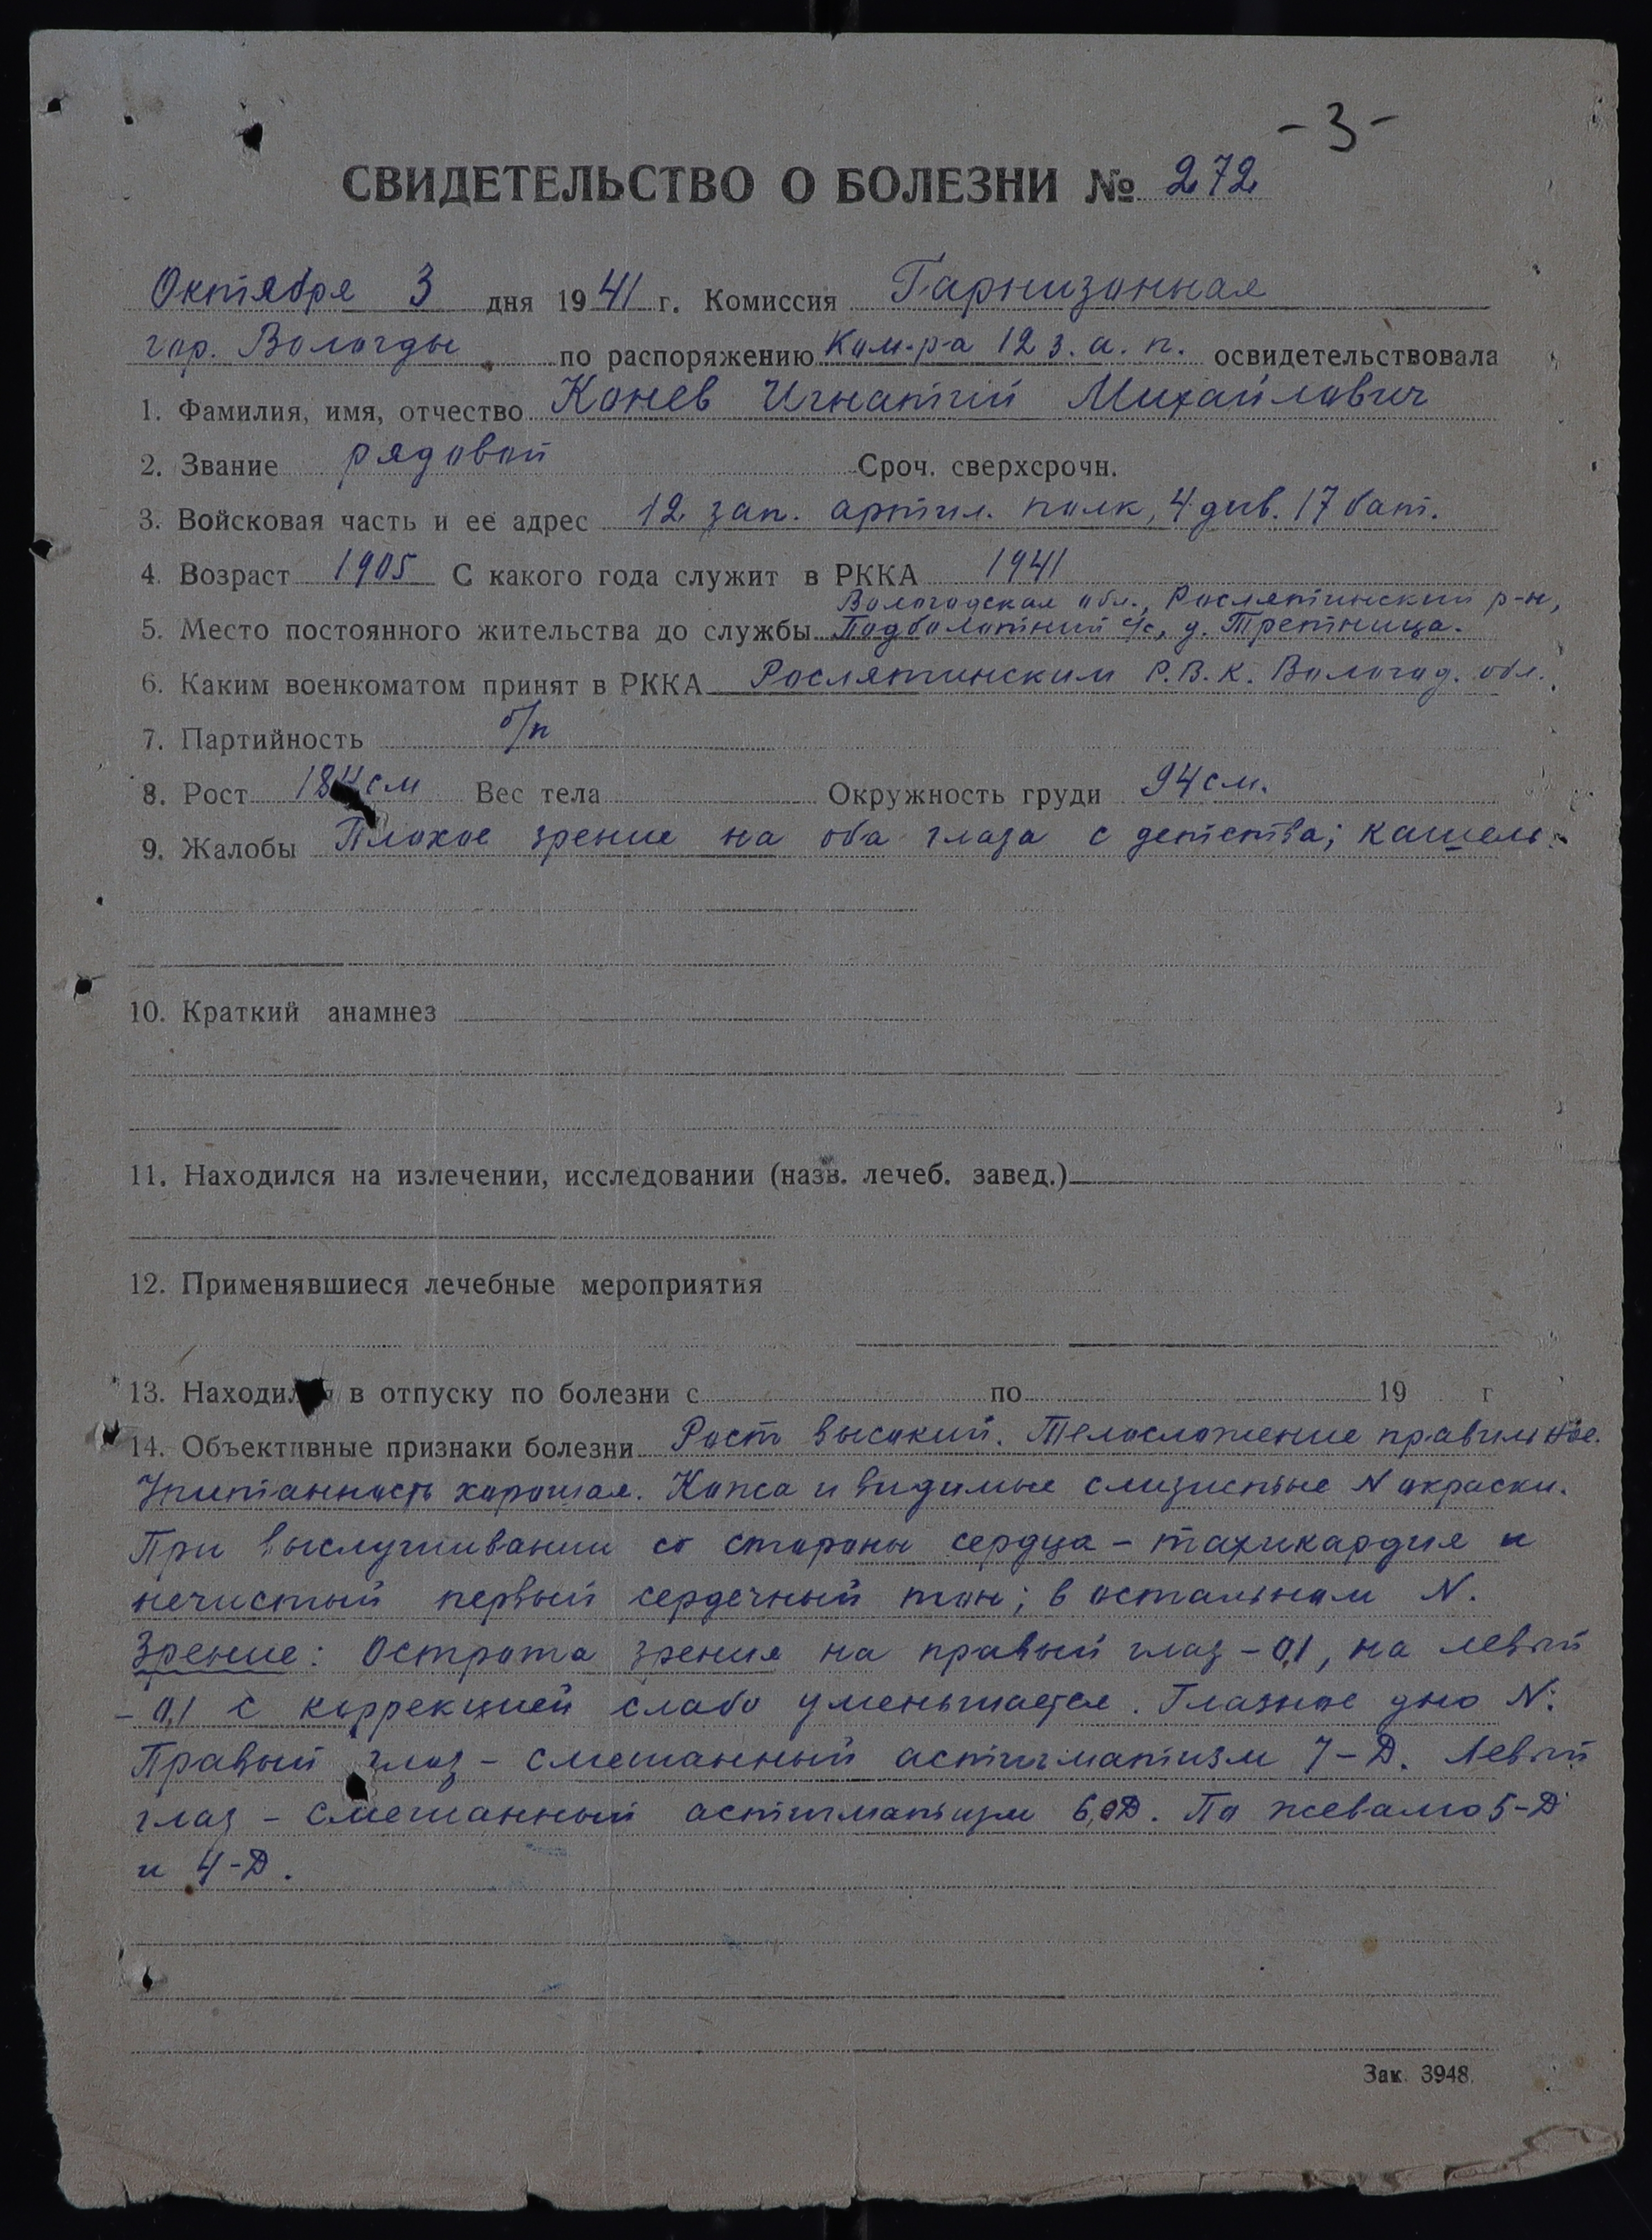 - 3 -
СВИДЕТЕЛЬСТВО О БОЛЕЗНИ № 272
Октября 3 дня 1941 г. Комиссия Гарнизонная
гор. Вологды по распоряжению Ком-ра 12 з. а. п. освидетельствовала
1. Фамилия, имя, отчество Конев Игнатий Михайлович
2. Звание рядовой Сроч. сверхсрочн.
3. Войсковая часть и ее адрес 12 зап. артил. полк, 4 див. 17 бат.
4. Возраст 1905 С какого года служит в РККА 1941
Вологодская обл., Рослятинский р-н,
5. Место постоянного жительства до службы Подболотный с/с, д. Третница.
6. Каким военкоматом принят в РККА Рослятинским Р.В.К. Вологод. обл.
7. Партийность б/п
8. Рост 184 см Вес тела Окружность груди 94 см.
9. Жалобы Плохое зрение на оба глаза с детства; кашель.
10. Краткий анамнез
11. Находился на излечении, исследовании (назв. лечеб. завед.)
12. Применявшиеся лечебные мероприятия
13. Находился в отпуску по болезни с по 19 г
14. Объективные признаки болезни Рост высокий. Телосложение правильное.
Упитанность хорошая. Кожа и видимые слизистые N окраски.
При выслушивании со стороны сердца – тахикардия и
нечистый первый сердечный тон; в остальном N.
Зрение: Острота зрения на правый глаз – 0,1, на левый
– 0,1 с коррекцией слабо уменьшается. Глазное дно N.
Правый глаз – смешанный астигматизм 7-D. Левый
глаз – смешанный астигматизм 6,0D. По 5-D
и 4-D.
Зак. 3948.